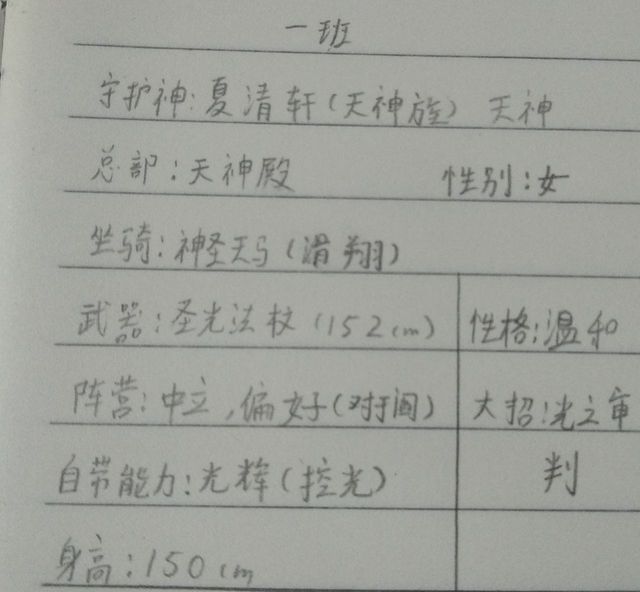 一班
守护神:夏清轩(天神族) 天神
总部:天神殿 性别:女
坐骑:神圣天马(滑翔)
武器:圣光法杖(152cm) 性格:温和
阵营:中立,偏好(对于) 大招:光之审
自带能力:光辉(控光) 判
身高:150cm